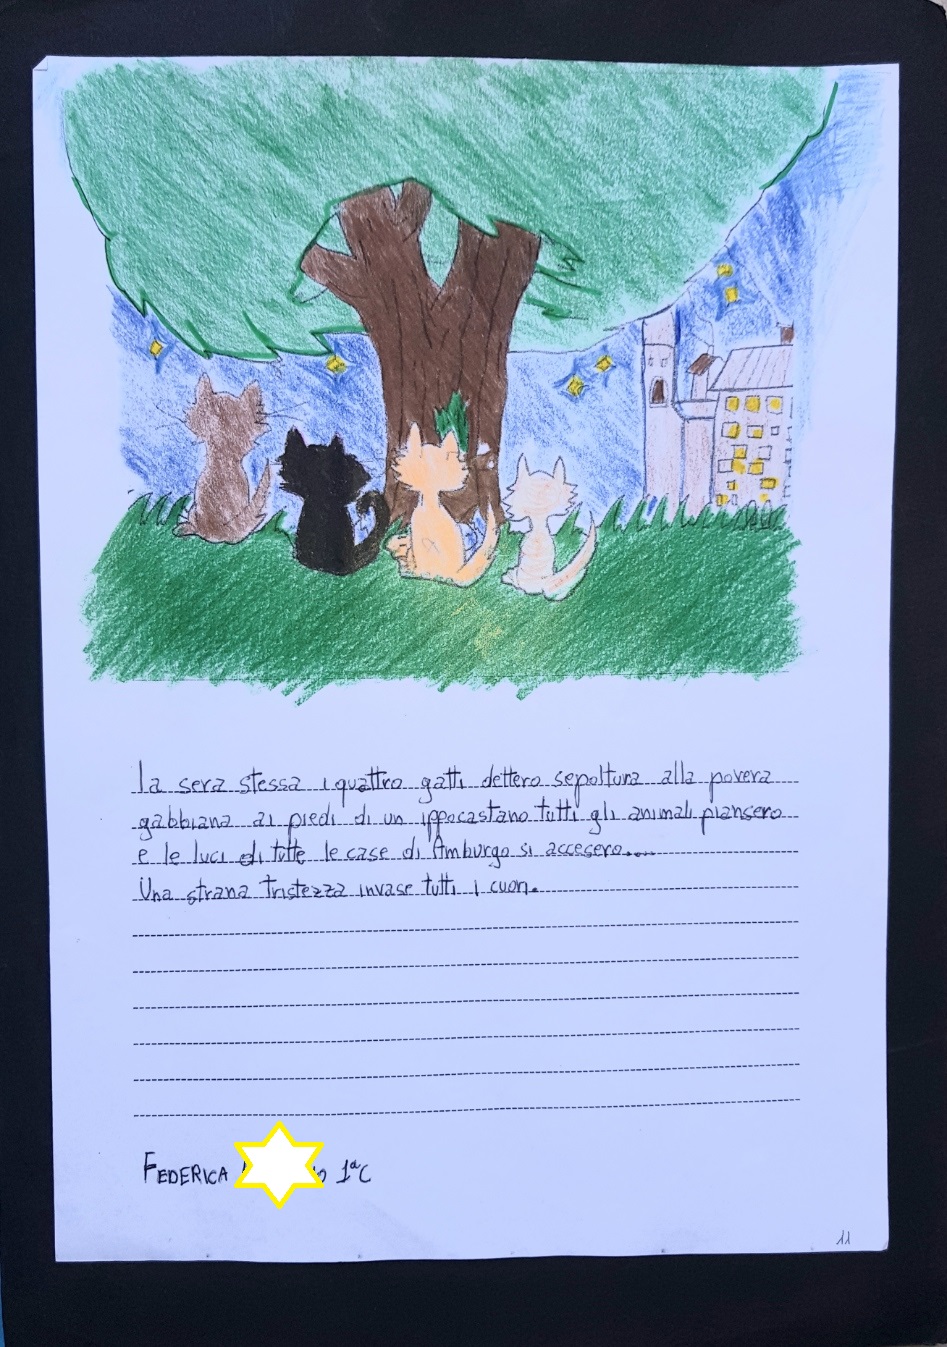 La sera stessa i quattro gatti dettero sepoltura alla povera
gabbiana ai piedi di un ippocastano tutti gli animali piansero
e le luci di tutte le case di Amburgo si accesero....
Una strana tristezza invase tutti i cuori.
FEDERICA 1ªC
11